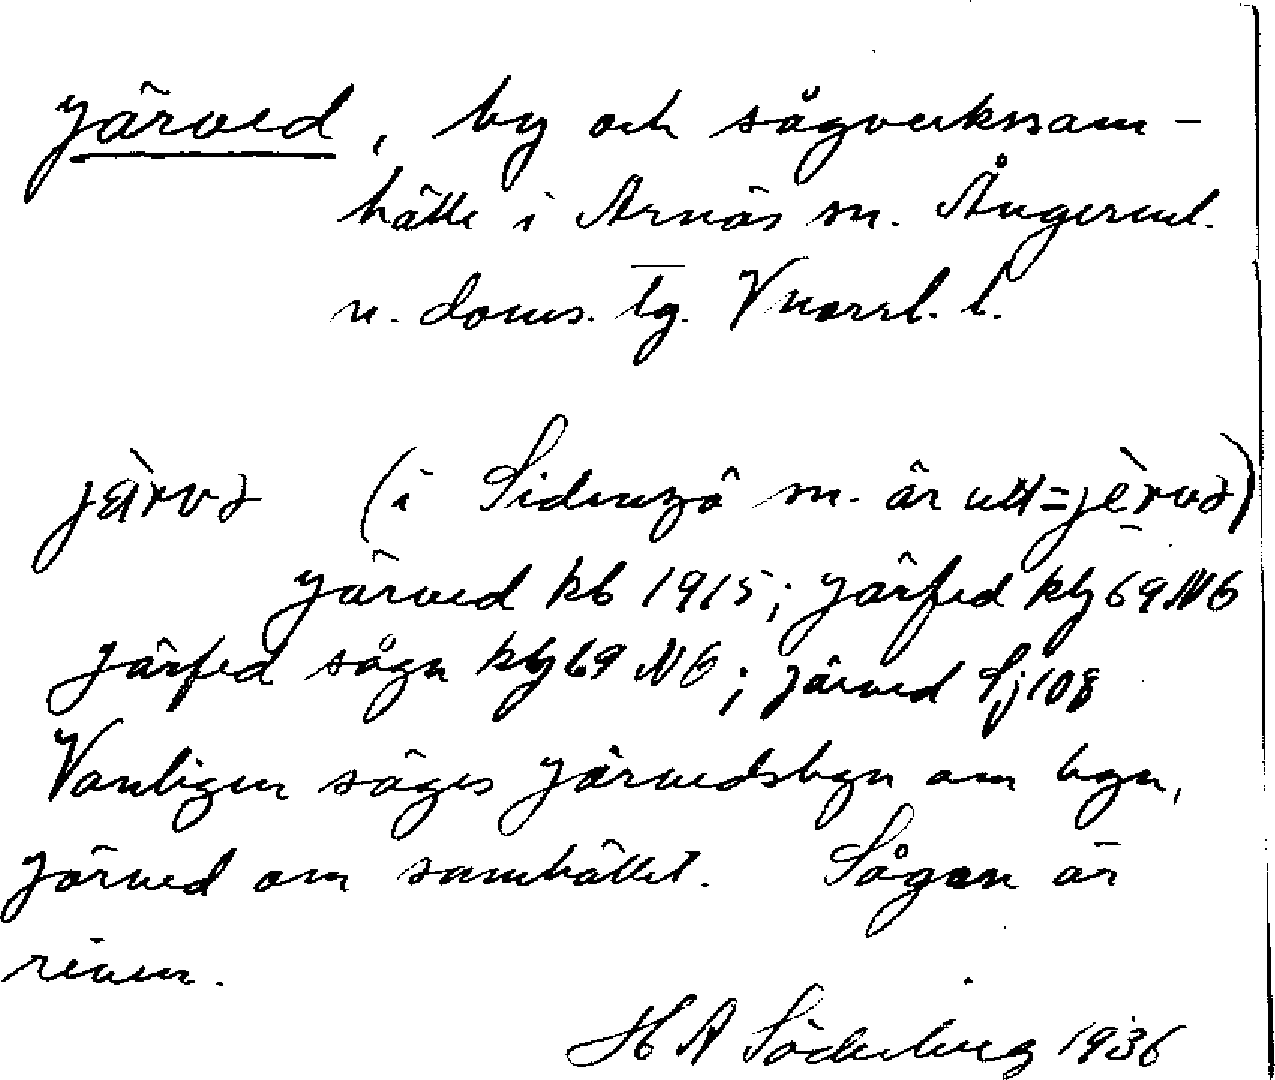 Järved, by och sågverkssam-
hälle i Arnäs sn. Ångerml.
n. doms. tg. Vnorrl. l.
(i Sidensjö sn. är utt=
Järved kb 1915; Järfed kbg 69 NO
Järfed sågn kbg 69 NO; Järved Sj 108
Vanligen säges Järvedsbyn om byn,
Järved om samhället. Sågen är
riven.
H A Söderberg 1936